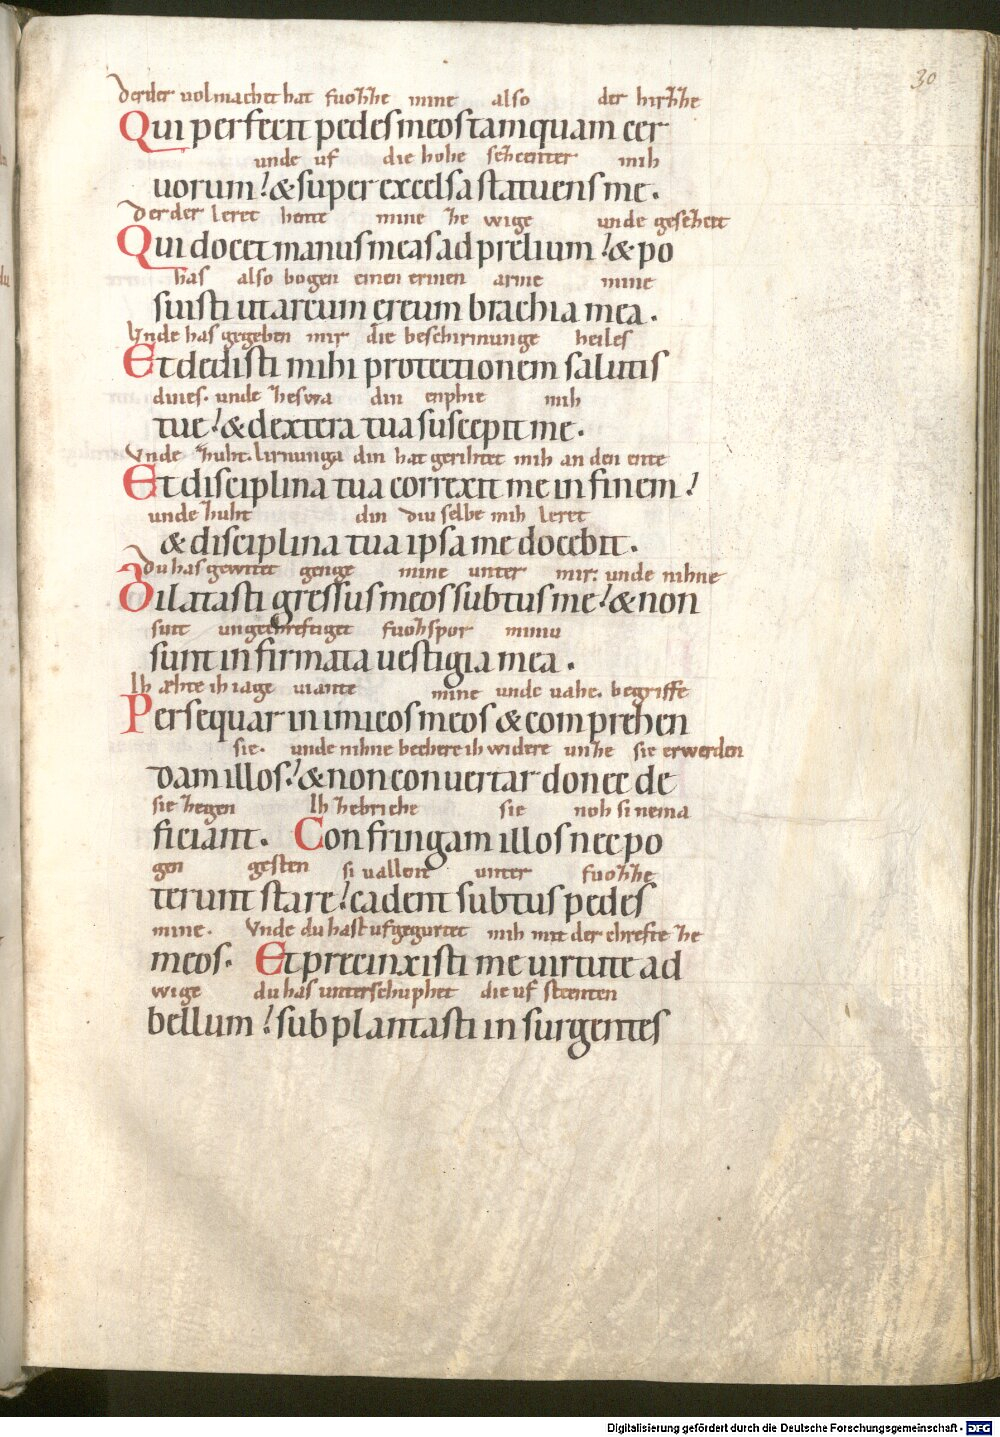 30
derder uolmachet hat fuozze mine also der hirzze
Qui perfecit pedes meos tamquam cer
unde uf die hohe setzenter mih
uorum & super excelsa statuens me.
derder leret hente mine ze wige unde gesetzt
Qui docet manus meas ad prelium & po
has also bogen einen erinen arme mine
suisti ut arcum ereum brachia mea.
Unde has gegeben mir die beschirmunge heiles
Et dedisti mihi protectionem salutis
dines. unde zeswa din enphie mih
tue & dextera tua suscepit me.
Unde zuht. lirnunga din hat gerihtet mih an den ente
Et disciplina tua correxit me in finem
unde zuht din diu selbe mih leret
& disciplina tua ipsa me docebit.
Du has gewitet genge mine unter mir: unde nihne
Dilatasti gressus meos subtus me & non
sint ungechreftiget fuozspor miniu
sunt infirmata uestigia mea.
Ih æhte ih iage uiante mine unde uahe. begriffe
Persequar inimicos meos & comprehen
sie. unde nihne bechere ih widere unze sie erwerden
dam illos. & non conuertar donec de
sie zegen Ih zebriche sie noh si nema
ficiant. Confringam illos nec po
gen gesten si uallent unter fuozze
terunt stare cadent subtus pedes
mine. Unde du hast ufgegurtet mih mit der chrefte ze
meos. Et precinxisti me uirtute ad
wige du has unterschuphet die uf stenten
bellum subplantasti insurgentes
Digitalisierung gefördert durch die Deutsche Forschungsgemeinschaft - DFG